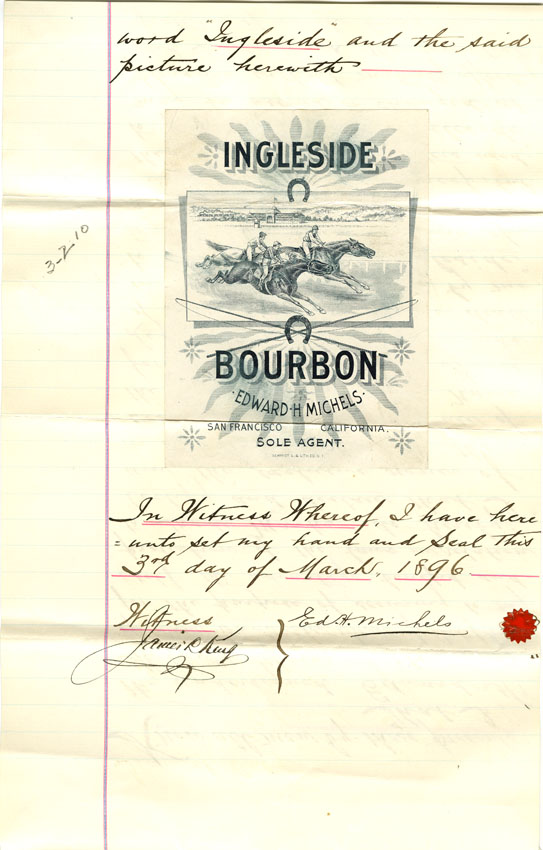 word "Ingleside" and the said
picture herewith
3-2-10
INGLESIDE
BOURBON
·EDWARD·H·MICHELS·
SAN FRANCISCO CALIFORNIA.
SOLE AGENT.
In Witness Whereof, I have here
=unto set my hand and Seal this
3rd day of March, 1896
Witness
James R King
Ed. H. Michels